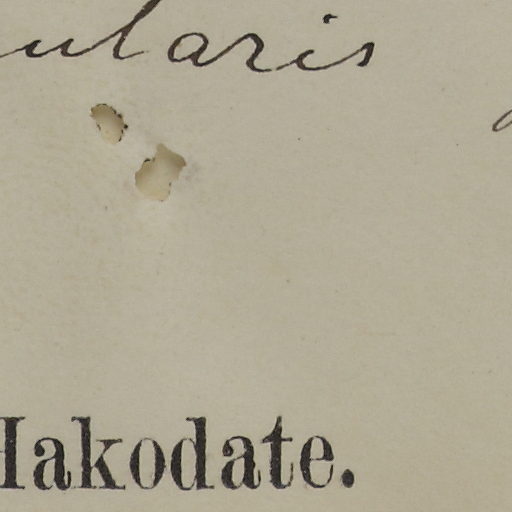 ularis
Hakodate.